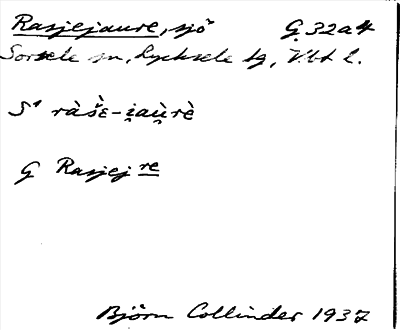 Rasjejaure, sjö G 32a4
Sorsele sn, Lycksele tg, Vbt l.
S¹ ràšὲ-i̯au̯rè
G Rasjej re
Björn Collinder 1937